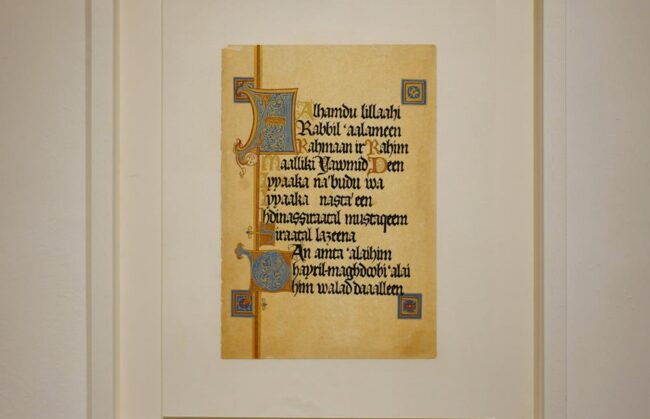 Alhamdu lillaahi
Rabbil ‘aalameen
Rahmaan ir Rahim
Maalliki Yawmid Deen
Iyyaaka na'budu wa
Iyyaaka nasta'een
Ihdinassiraatal mustaqeem
Siraatal lazeena
An amta ‘alaihim
Ghayril-maghdoobi ‘alai
him walad daaalleen